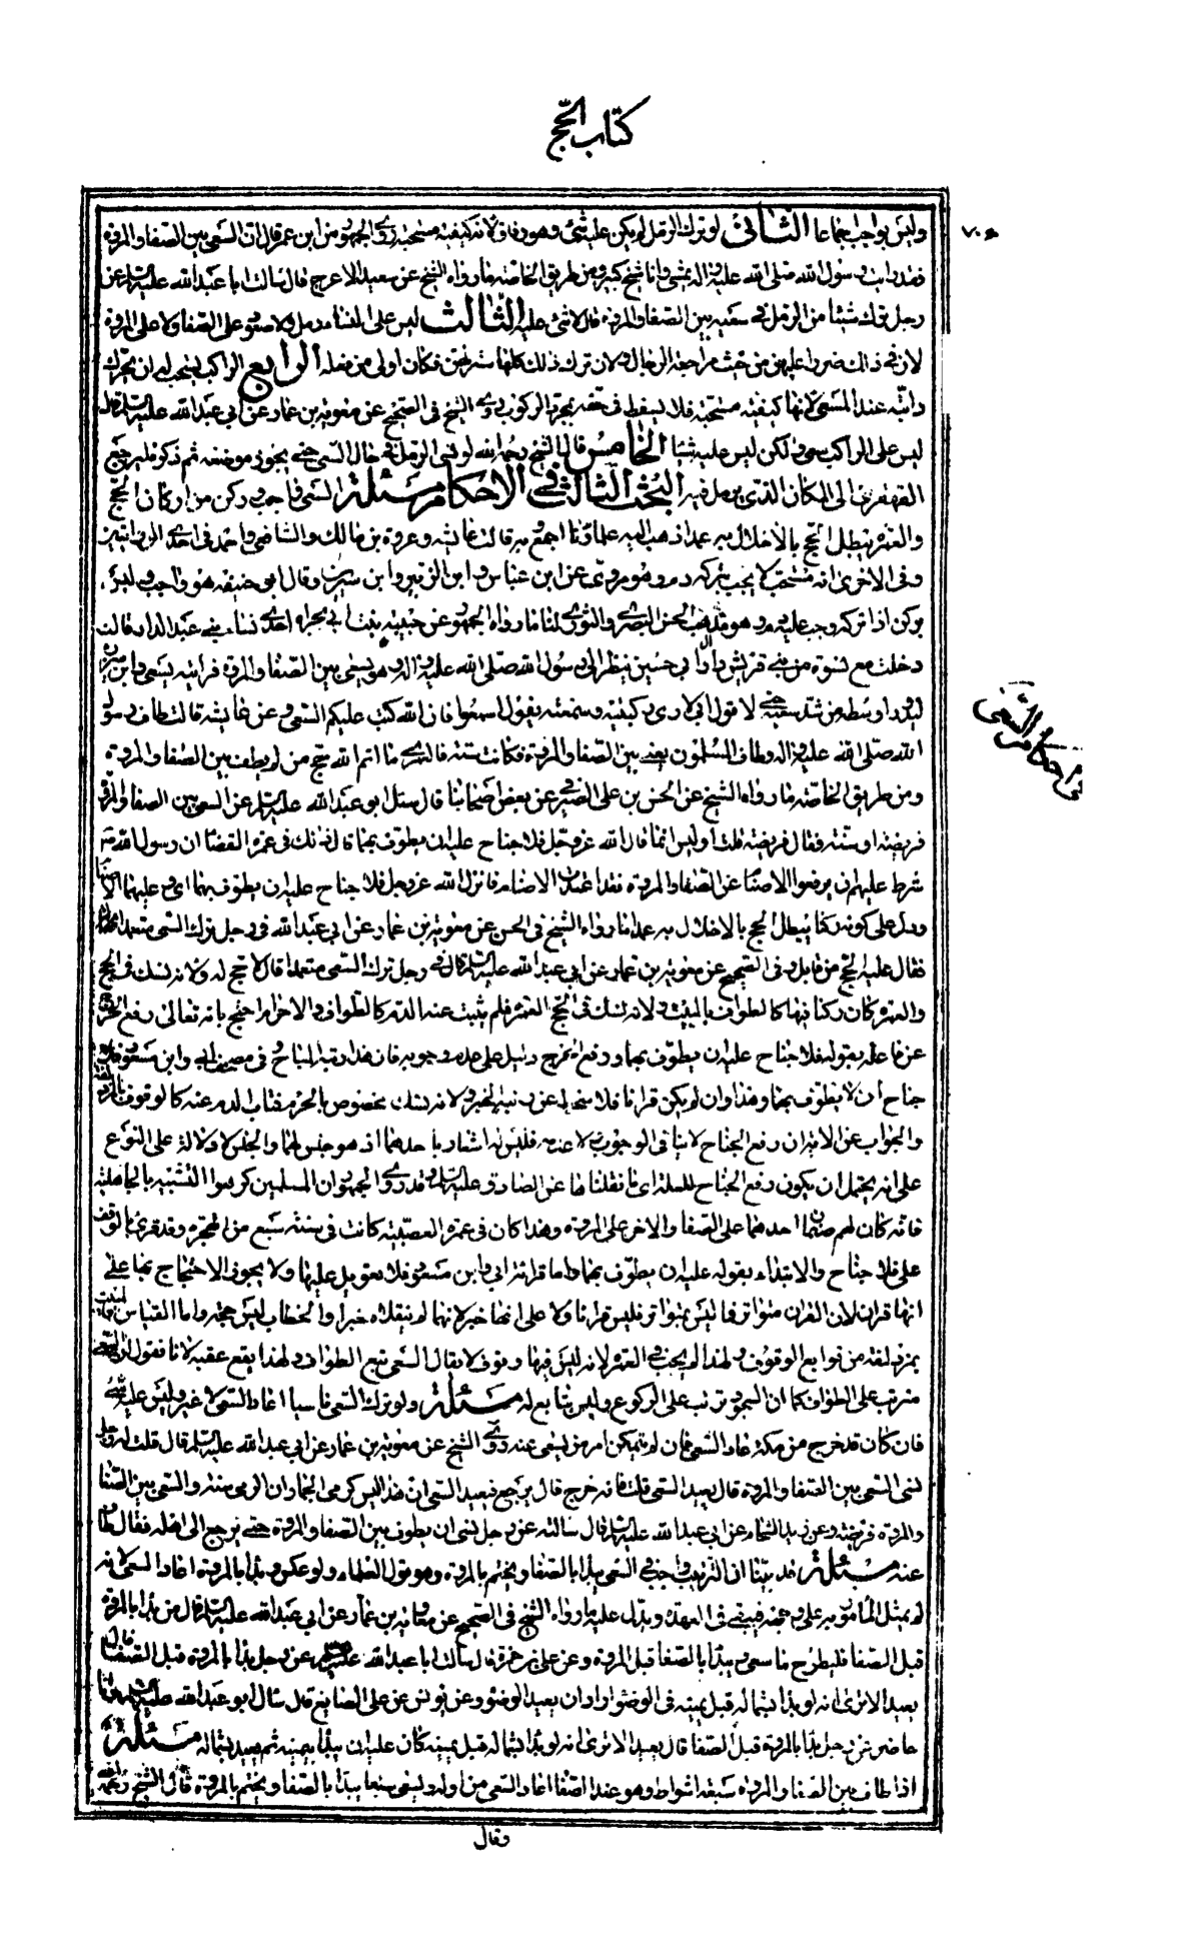 كتاب الحج
٧٠٥
وليس بواجب اجماعا الثانى لو ترك الرمل لم يكن عليه شئ وهو وفاق لانه كيفيته مستحبة روى الجمهور عن ابن عمر قال ان اسعى بين الصفا والمروة
فقد رايت رسول الله صلى الله عليه واله يمشى وانا شيخ كبير ومن طريق الخاصة ما رواه الشيخ عن سعيد الاعرج قال سالت ابا عبد الله عليه السلم عن
رجل ترك شيئا من الرمل فى سعيه بين الصفا والمروة قال لا شئ عليه الثالث ليس على النساء رمل ولا صعود على الصفا ولا على المروة
لان فى ذلك ضررا عليهن من حيث مزاحمة الرجال ولان ترك ذلك كله استر لهن فكان اولى من فعله الرابع الراكب يستحب له ان يحرك
دابته عند المسعى لانها كيفية مستحبة فلا يسقط فى حقه بمجرد الركوب روى الشيخ فى الصحيح عن معوية بن عمار عن ابى عبد الله عليه السلم قال
ليس على الراكب سعى ولكن ليس عليه شيئا الخامس قال الشيخ رحمه الله لو نسى الرمل فى حال السعى حتى يجوز موضعه ثم ذكر فليرجع
القهقرى الى المكان الذى يرمل فيه البحث الثالث فى الاحكام مسئلة السعى واجب وركن من اركان الحج
والعمرة يبطل الحج بالاخلال به عمدا ذهب اليه علماؤنا اجمع وبه قالت عايشة وعروة بن مالك والشافعى واحمد فى احدى الروايتين
وفى الاخرى انه مستحب لا يجب بتركه دم وهو مروى عن ابن عباس وابن الزبير وابن سيرين وقال ابو حنيفة هو واجب وليس
بركن اذا تركه وجب عليه دم وهو مذهب الحسن البصرى والثورى لنا ما رواه الجمهور عن حبيبة بنت ابى بجراه احدى نساء بنى عبد الدار قالت
دخلت مع نسوة من قريش دار ال ابى حسين ننظر الى رسول الله صلى الله عليه واله وهو يسعى بين الصفا والمروة فرايته يسعى وان ميزره
ليدور وسطه من شدة سعيه حتى لا قول انى لا رى ركبتيه وسمعته يقول اسعوا فان الله كتب عليكم السعى وعن عايشة قالت طاف رسول
الله صلى الله عليه واله وطاف المسلمون يعنى بين الصفا والمروة فكانت سنة فلعمرى ما اتم الله حج من لم يطف بين الصفا والمروة
ومن طريق الخاصة ما رواه الشيخ عن الحسن بن على الصيرفى عن بعض اصحابنا قال سئل ابو عبد الله عليه السلم عن السعى بين الصفا والمروة
فريضة او سنة فقال فريضة قلت اوليس انما قال الله عز وجل فلا جناح عليه ان يطوف بهما قال ذلك فى عمرة القضاء ان رسول الله ص
شرط عليهم ان يرفعوا الاصنام عن الصفا والمروة فانزل الله عز وجل فلا جناح عليه ان يطوف بهما اى وعليهما الاصنام
ويدل على كونه ركنا يبطل الحج بالاخلال به عمدا ما رواه الشيخ فى الحسن عن معوية بن عمار عن ابى عبد الله فى رجل ترك السعى متعمدا
فقال عليه الحج من قابل وفى الصحيح عن معوية بن عمار عن ابى عبد الله عليه السلم قال فى رجل ترك السعى متعمدا قال لا حج له ولانه نسك فى الحج
والعمرة كان ركنا فيهما كالطواف بالبيت ولانه نسك فى الحج العمرة فلم يثبت عنه الدم كالطواف والاحرام احتج بانه تعالى رفع الحرج
عن فاعله بقوله فلا جناح عليه ان يطوف بهما ورفع الحرج دليل على عدم وجوبه فان هذا رتبة المباح وفى مصحف ابى وابن مسعود فلا
جناح ان لا يطوف بهما وهذا وان لم يكن قرانا فلا ينحط عن رتبة الخبر ولانه نسك مخصوص بالحرم فناب الدم عنه كالوقوف بالمزدلفة
والجواب عن الاية ان رفع الجناح لا ينافى الوجوب ولا عدمه فليس له اشعار باحدهما اذ هو جنس لهما والجنس لا دلالة على النوع
على انه يحتمل ان يكون رفع الجناح للعلة التى نقلناها عن الصادق عليه السلم وقد روى الجمهور ان المسلمين كرهوا التشبيه بالجاهلية
فانه كان لهم صنمان احدهما على الصفا والاخر على المروة وهذا كان فى عمرة القضية كانت فى سنة سبع من الهجرة وقد قرئ بالوقف
على فلا جناح والابتداء بقوله عليه ان يطوف بهما واما قرائة ابى وابن مسعود فلا تعويل عليها ولا يجوز الاحتجاج بها على
انها قران لان القران متواتر فما ليس بمتواتر فليس قرانا ولا على انها خبر لانهما لم ينقلاه خبرا والخطاب ليس حجة واما القياس
بمزدلفة من توابع الوقوف ولهذا لم يجب فى العمرة لانه ليس فيها وقوف لا يقال السعى تبع الطواف ولهذا يقع عقبه لانا نقول ان السعى
مترتب على الطواف كما ان السجود ترتب على الركوع وليس بتابع له مسئلة ولو ترك السعى ناسيا اعاد السعى لا غير وليس عليه شئ
فان كان قد خرج من مكة عاد للسعى فان لم يتمكن امر من يسعى عنه روى الشيخ عن معوية بن عمار عن ابى عبد الله عليه السلم قال قلت له رجل
نسى السعى بين الصفا والمروة قال يعيد السعى قلت فانه خرج قال يرجع فيعيد السعى ان هذا ليس كرمى الجمار ان الرمى سنة والسعى بين الصفا
والمروة فريضة وعن زيد الشحام عن ابى عبد الله عليه السلم قال سالته عن رجل نسى ان يطوف بين الصفا والمروة حتى يرجع الى اهله فقال يطاف
عنه مسئلة قد بينا ان الترتيب واجب فى السعى يبدا بالصفا ويختم بالمروة وهو قول العلماء ولو عكس وبدا بالمروة اعاد السعى لانه
لم يمثل المامور به على وجهه فيبقى فى العهدة ويدل عليه ما رواه الشيخ فى الصحيح عن معوية بن عمار عن ابى عبد الله عليه السلم قال من بدا بالمروة
قبل الصفا فليطرح ما سعى ويبدا بالصفا قبل المروة وعن على بن حمزة قال سالت ابا عبد الله عليه السلم عن رجل بدا بالمروة قبل الصفا قال
يعيد الا ترى انه لو بدا بشماله قبل يمينه فى الوضوء اراد ان يعيد الوضوء وعن يونس عن على الصايغ قال سال ابو عبد الله عليه السلم وانا
حاضر عن رجل بدا بالمروة قبل الصفا قال يعيد الا ترى انه لو بدا بشماله قبل يمينه كان عليه ان يبدا بيمينه ثم يعيد بشماله مسئلة
اذا طاف بين الصفا والمروة سبعة اشواط وهو عند الصفا اعاد السعى من اوله ويسعى سبعا يبدا بالصفا ويختم بالمروة قال الشيخ رحمه
وقال
فى احكام السعى